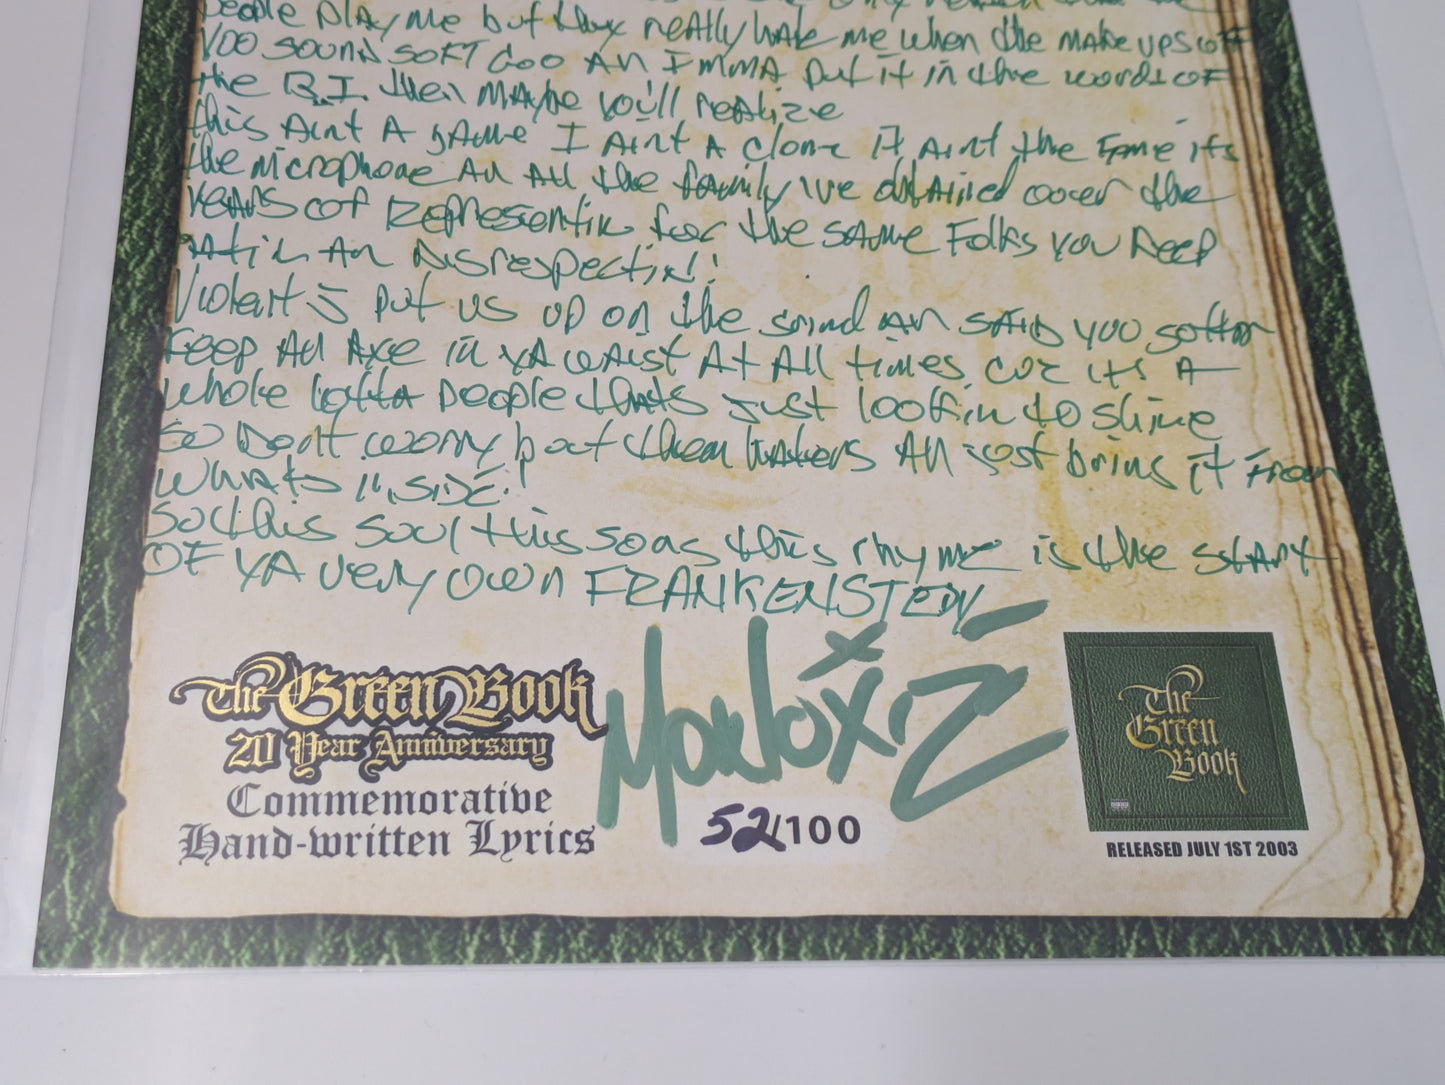 People play me but they really hate me when the make ups off
YOO SOUND SOFT GOO AN IMMA put it in the words of
the B.I. then maybe you'll realize
this Aint A game I Aint A clone it Aint the Fame its
the microphone An All the family I've obtained over the
years of Representin for the same Folks you keep
An Disrespectin!
Violent J put us up on the grind An said you gotta
Keep An Axe in ya waist At All times coz its A
whole lotta people thats just lookin to shine
So Dont worry bout them haters An just bring it From
Whats inside!
So this soul this song this rhyme is the start
OF YA very own FRANKENSTEIN
The Green Book
20 Year Anniversary
Commemorative
Hand-written Lyrics
Monoxide
52/100
The
Green
Book
RELEASED JULY 1ST 2003